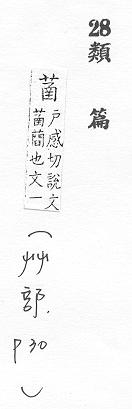 28 類篇
菡
戶感切說文
菡䕭也文一
(艸部. P30)